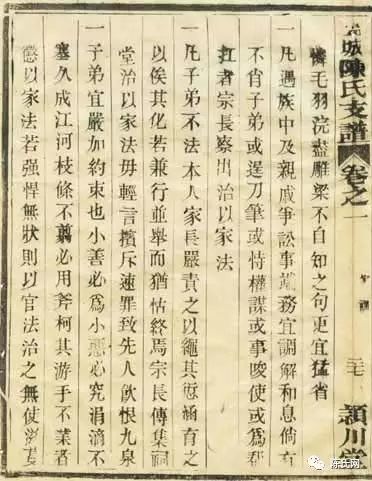 城陳氏支譜 卷之一 三七 潁川堂
毛羽浣盡雕梁不自知之句更宜猛省
一凡遇族中及親戚爭訟事端務宜調解和息倘有
不肖子弟或逞刀筆或恃權謀或事唆使或爲幫
扛者宗長察出治以家法
一凡子弟不法本人家長嚴責之以繩其愆涵育之
以俟其化若兼行並舉而猶怙終焉宗長傳集祠
堂治以家法毋輕言擯斥速罪致先人飲恨九泉
一子弟宜嚴加約束也小善必爲小惡必究涓滴不
塞久成江河枝條不翦必用斧柯其游手不業者
懲以家法若强悍無狀則以官法治之無使滋蔓
陈氏网